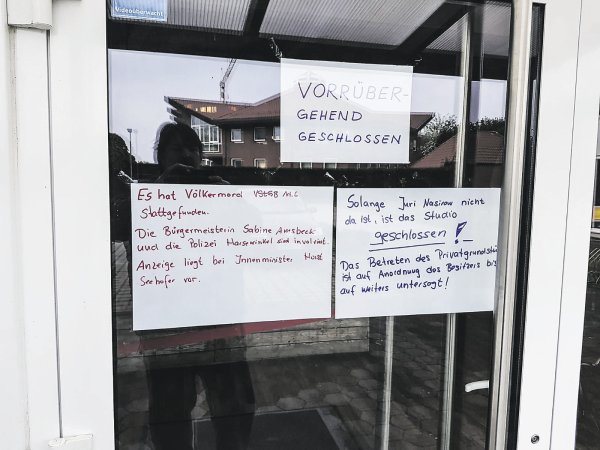 Videoüberwacht
VORRÜBER-
GEHEND
GESCHLOSSEN
Es hat Völkermord VStGB
Stattgefunden.
Die Bürgermeisterin Sabine Amsbeck
und die Polizei Harsewinkel sind involviert.
Anzeige liegt bei Innenminister Horst
Seehofer vor.
Solange Juri Nasirow nicht
da ist, ist das Studio
geschlossen!
Das Betreten des Privatgrundstü
ist auf Anordnung des Besitzers bis
auf weiters untersagt!